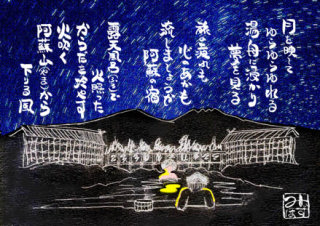 月を映して
ゆらゆらゆれる
湯舟に浸かり
夢を見る
旅の疲れも
心のあかも
流しましょうか
阿蘇の宿
露天風呂で
火照った
からだをさます
火を噴く
から
下る風